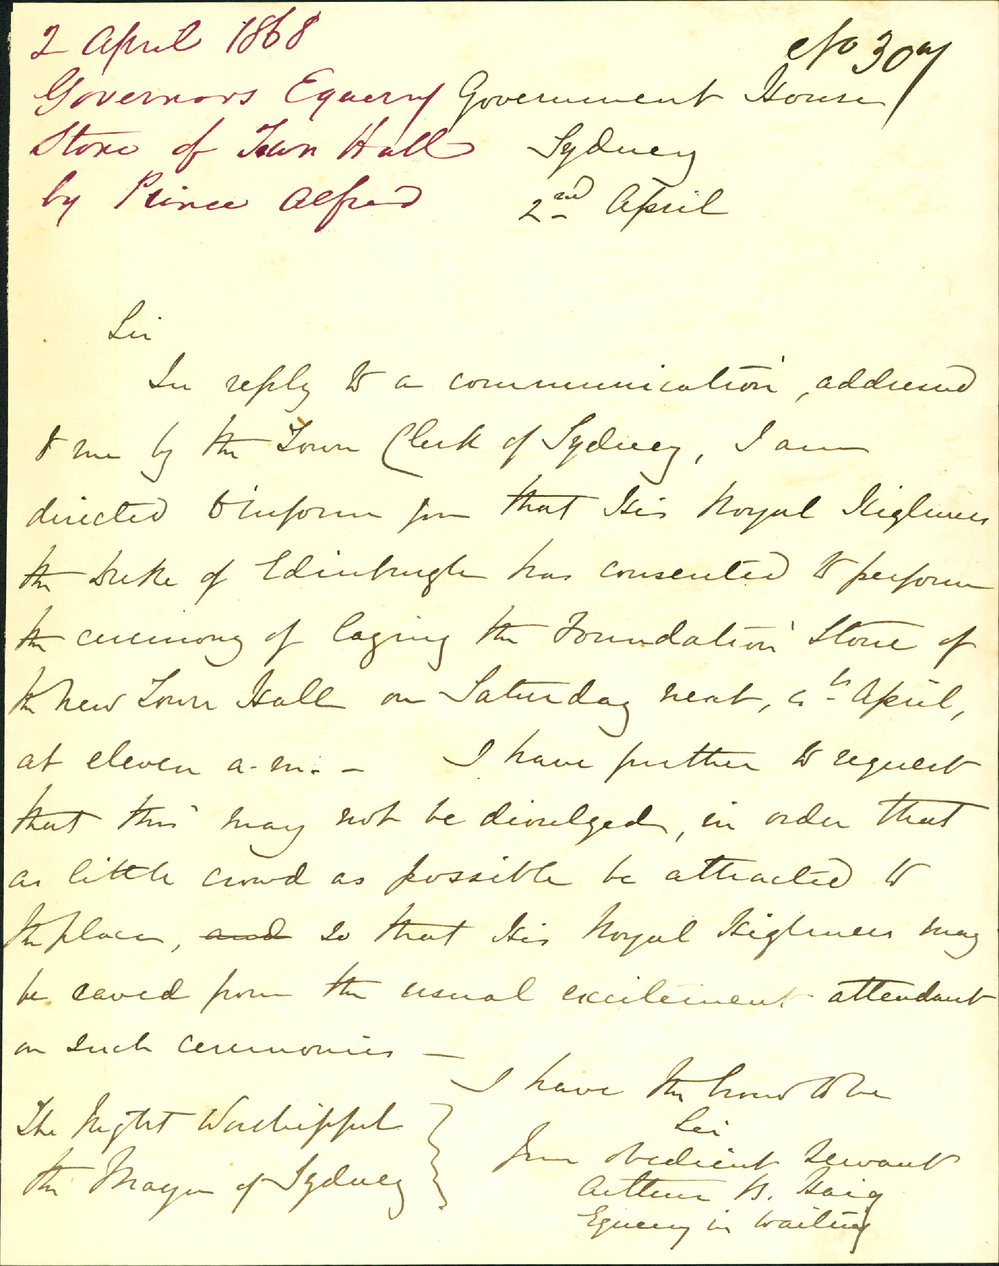 2 April 1868
No 307
Governors Equerry
Stone of Town Hall
by Prince Alfred
Government House
Sydney
2nd April
Sir
In reply to a communication, addressed
to me by the Town Clerk of Sydney, I am
directed to inform you that His Royal Highness
the Duke of Edinburgh has consented to perform
the ceremony of laying the Foundation Stone of
the New Town Hall on Saturday next, 4th April,
at eleven a.m. – I have further to request
that this may not be divulged, in order that
as little crowd as possible be attracted to
the place, and so that His Royal Highness may
be saved from the usual excitement attendant
on such ceremonies –
I have the honor to be
Sir
Your obedient servant
Arthur B. Haig
Equerry in Waiting
The Right Worshipful
the Mayor of Sydney